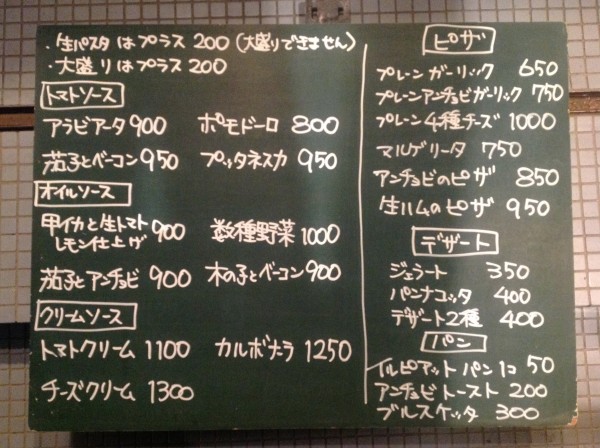 ・生パスタはプラス200(大盛りできません)
・大盛りはプラス200
トマトソース
アラビアータ900 ポモドーロ800
茄子とベーコン950 プッタネスカ950
オイルソース
甲イカと生トマト
レモン仕上げ 900 数種野菜1000
茄子とアンチョビ900 木の子とベーコン900
クリームソース
トマトクリーム1100 カルボナーラ1250
チーズクリーム1300
ピザ
プレーンガーリック650
プレーンアンチョビガーリック750
プレーン4種チーズ1000
マルゲリータ750
アンチョビのピザ850
生ハムのピザ950
デザート
ジェラート350
パンナコッタ400
デザート2種400
パン
イルピアットパン1コ50
アンチョビトースト200
ブルスケッタ300